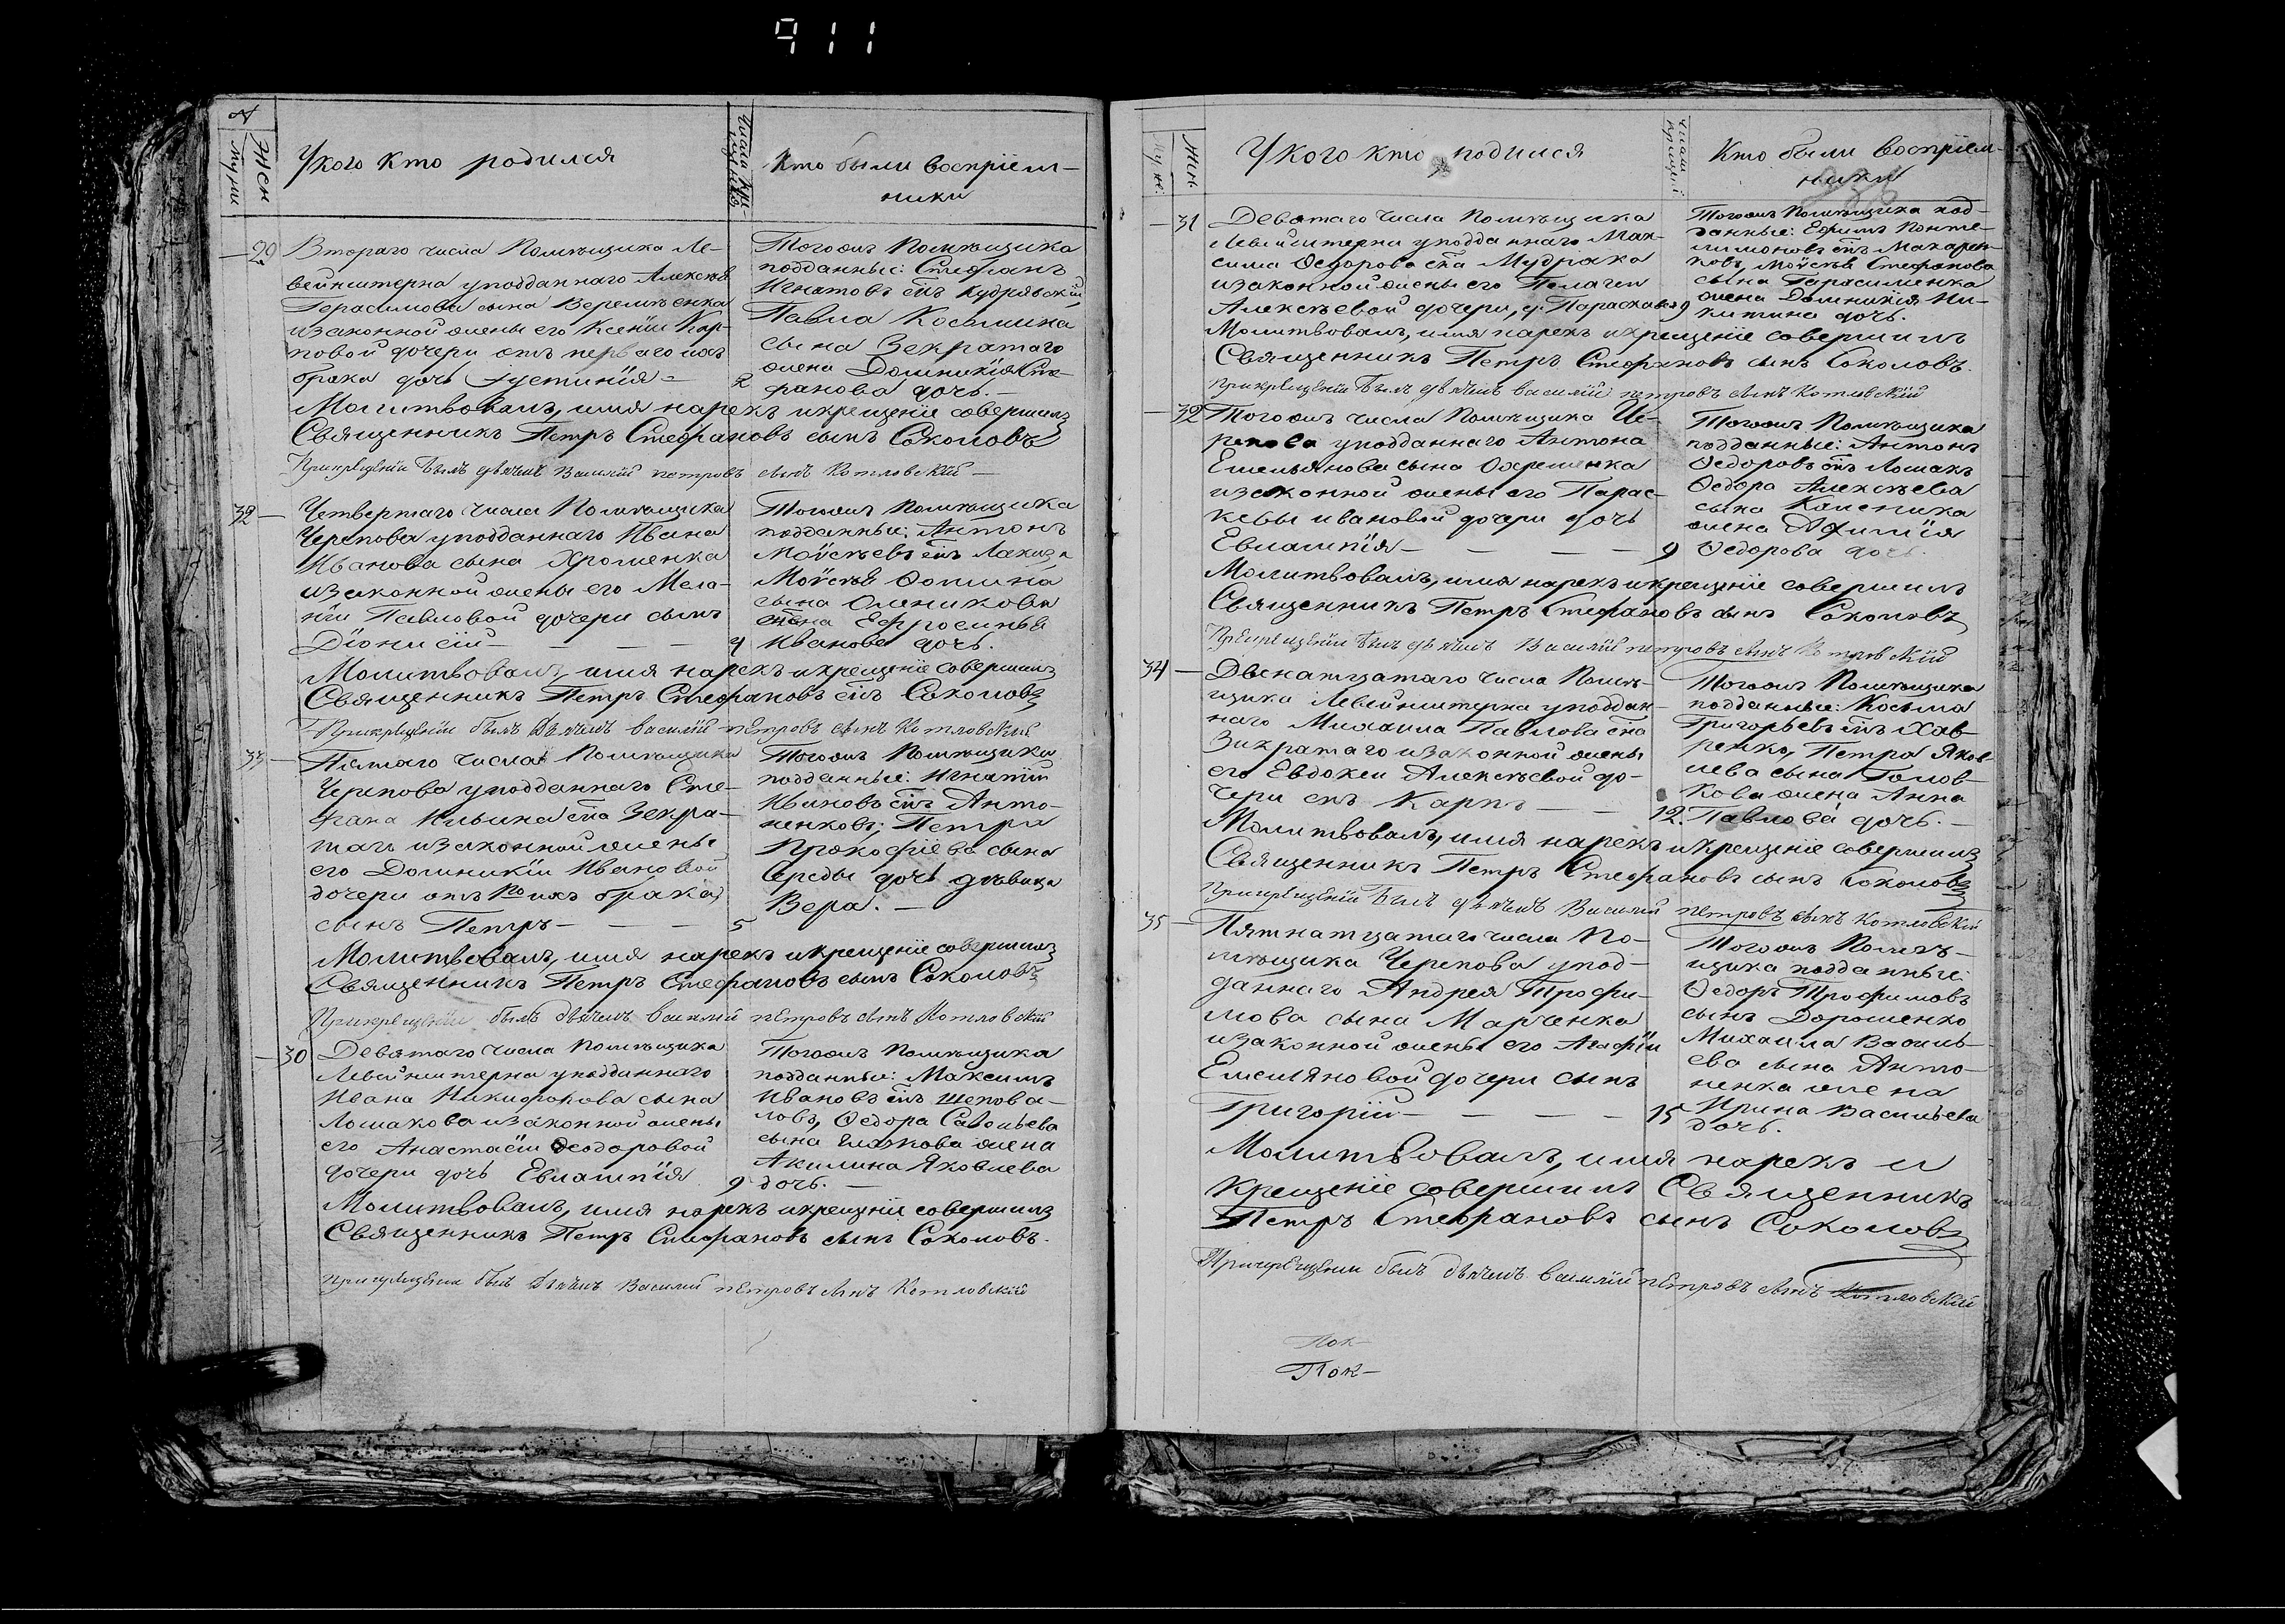 911
№
Муж
Жен
У кого кто родился
Числа крещенія
Кто были воспріем-
ники
29
Втораго числа Помѣщика Ле-
вейнштерна у подданнаго Алексѣя
Герасимова сына Веремѣенка
изаконной жены его Ксеніи Кар-
повой дочери отъ перваго ихъ
брака дочь Густинія
2
Тогожъ Помѣщика
подданные: Стефанъ
Игнатовъ снъ Кудрявскій
Павла Косьмина
сына Зекратаго
жена Домникія Сте-
фанова дочь.
Молитвовалъ, имя нарекъ и крещеніе совершилъ
Священникъ Петръ Стефановъ сынъ Соколовъ
При крещеніи былъ дьячекъ Василий петровъ сынъ Котловский
32
Четвертаго числа Помѣщика
Черепова у подданнаго Ивана
Иванова сына Хроменка
изаконной жены его Мела-
ніи Павловой дочери сынъ
Діонисій
4
Тогожъ Помѣщика
подданные: Антонъ
Мойсѣевъ снъ
Мойсѣя Фомина
сына Оленикова
жена Ефросинья
Иванова дочь.
Молитвовалъ, имя нарекъ и крещеніе совершилъ
Священникъ Петръ Стефановъ снъ Соколовъ
При крещеніи былъ дьячекъ василий петровъ сынъ Котловский
33
Пятаго числа Помѣщика
Черепова у подданнаго Сте-
фана Ильина сна Зекра-
таго изаконной жены
его Домникіи Ивановой
дочери отъ 1го ихъ брака
сынъ Петръ
5
Тогожъ Помѣщика
подданные: Игнатій
Ивановъ снъ Анто-
ненковъ; Петра
Прокофіева сына
Середы дочь дѣвица
Вера.
Молитвовалъ, имя нарекъ и крещеніе совершилъ
Священникъ Петръ Стефановъ сынъ Соколовъ
При крещеніи былъ дьячекъ василий петровъ сынъ Котловский
30
Девятаго числа Помѣщика
Левейнштерна у подданнаго
Ивана Никифорова сына
Ломакова изаконной жены
его Анастасіи Феодоровой
дочери дочь Евлампія
9
Тогожъ Помѣщика
подданные: Максимъ
Ивановъ снъ Шепова-
ловъ, Федора Савельева
сына жена
Акилина Яковлева
дочь.
Молитвовалъ, имя нарекъ и крещеніе совершилъ
Священникъ Петръ Стефановъ сынъ Соколовъ.
При крещеніи былъ дьячекъ Василий петровъ сынъ Котловский
Муж:
Жен
У кого кто родился
Числа крещенія
Кто были воспріем-
ники
31
Девятаго числа Помѣщика
Левейнштерна у подданнаго Мак-
сима Федорова сна Мудрака
изаконной жены его Пелагеи
Алексѣевой дочери, д. Параскавія
9
Тогожъ Помѣщика под-
данные: Ефимъ Понте-
лимоновъ снъ Макарен-
ковъ, Мойсѣя Стефанова
сына Гарасименка
жена Домникія Ни-
китина дочь.
Молитвовалъ, имя нарекъ и крещеніе совершилъ
Священникъ Петръ Стефановъ сынъ Соколовъ.
При крещеніи былъ дьячекъ василий петровъ сынъ Котловский
32
Тогожъ числа Помѣщика Че-
репова у подданнаго Антона
Емельянова сына Охременка
изаконной жены его Парас-
кевы ивановой дочери дочь
Евлампія
9
Тогожъ Помѣщика
подданные: Антонъ
Федоровъ снъ Ломакъ
Федора Алексѣева
сына
жена Афимія
Федорова дочь.
Молитвовалъ, имя нарекъ и крещеніе совершилъ
Священникъ Петръ Стефановъ сынъ Соколовъ
При крещеніи былъ дьячекъ Василий петровъ сынъ Котловский
34
Двенатцатаго числа Помѣ-
щика Левейнштерна у поддан-
наго Михаила Павлова сна
Зикратаго изаконной жены
его Евдокеи Алексѣевой до-
чери снъ Карпъ
12.
Тогожъ Помѣщика
подданные: Косьма
Григорьевъ снъ Хав-
ренко, Петра Яков-
лева сына Голов-
кова жена Анна
Павлова дочь.
Молитвовалъ, имя нарекъ и крещеніе совершилъ
Священникъ Петръ Стефановъ сынъ Соколовъ
При крещеніи былъ дьячекъ Василий петровъ сынъ Котловский
35
Пятнатцатаго числа По-
мѣщика Черепова у под-
даннаго Андрея Трофи-
мова сына Марченка
изаконной жены его Агафіи
Емеляновой дочери сынъ
Григорій
15
Тогожъ Помѣ-
щика подданные:
Федоръ Трофимовъ
сынъ Дорошенко
Михаила Василь-
ева сына Анто-
ненка жена
Ирина Васильева
дочь.
Молитвовалъ, имя нарекъ и
крещеніе совершилъ Священникъ
Петръ Стефановъ сынъ Соколовъ
При крещеніи былъ дьячекъ василий петровъ сынъ Котловский
Пок
Пок-